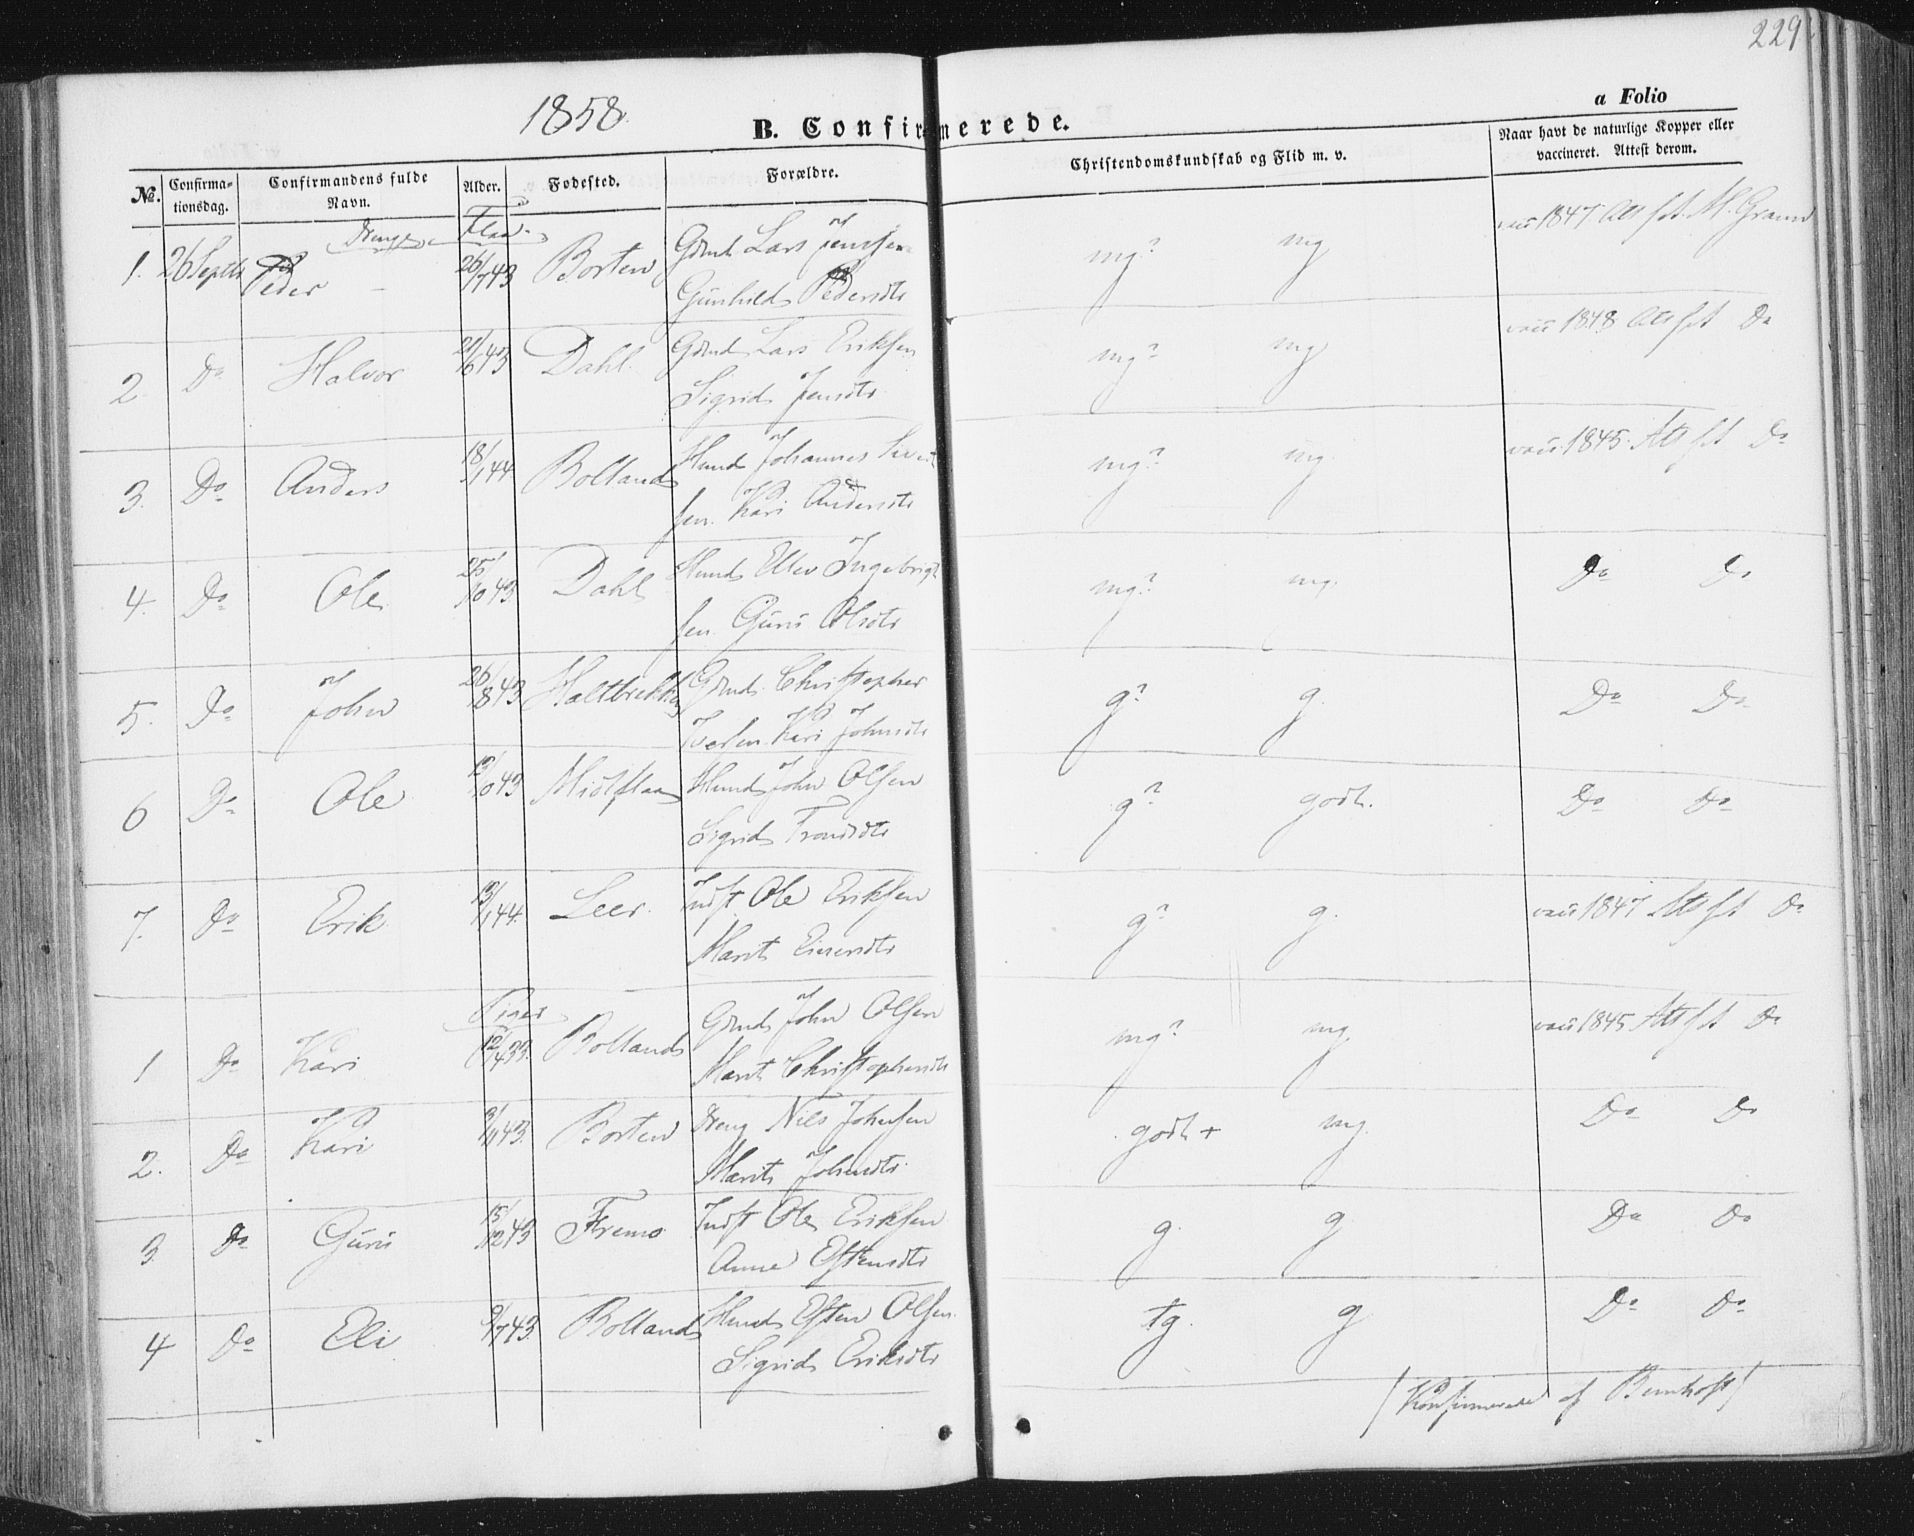 229
1858
B. Confirmerede.
a Folio
No. Confirmationsdag. Confirmandens fulde Navn. Alder. Fødested. Forældre. Christendomskundskab og Flid m. v. Naar havt de naturlige Kopper eller vaccineret. Attest derom.
Drenge Flaa
1. 26 Septb Peder 26/7 43 Borten Gbmd Lars Jensen mg? mg vacc 1847 Att fst. M. Gram
Gunhild Pedersdtr
2. Do Halvor 21/6 43 Dahl Gbmd Lars Eriksen mg? mg vacc 1848 Att fst Do
Sigrid Jensdtr
3. Do Anders 18/1 44 Bolland Hmd Johannes Sivert mg? mg. vacc 1845 Att fst Do
sen. Kari Andersdtr
4. Do Ole 25/10 43 Dahl Hmd Ellev Ingebrigt mg? mg. Do Do
sen. Guru Olsdtr
5. Do John 26/8 43 Haltbrekken Gbmd. Christopher g? g. Do Do
Iversen. Kari Johnsdtr
6 Do Ole /10 43 Midtflaa Hmd John Olsen g? godt. Do Do
Sigrid Trondsdtr
7. Do Erik 13/1 44. Leer. Indst Ole Eriksen g? g. vacc 1847 Att fst Do
Marit Einersdtr
Piger
1 Do Kari 43. Bolland Gbmd John Olsen mg? mg. vacc 1845 Att fst Do
Marit Christophersdtr
2. Do Kari 43. Borten Dreng Nils Johnsen godt + mg. Do Do
Marit Johnsdtr.
3 Do Guru 15/12 43 Fremo Indst Ole Eriksen g. g Do Do
Anne Estensdtr
4 Do Eli 9/7 43. Bolland Hmd Esten Olsen. tg. g Do Do
Sigrid Eriksdtr
(Konfirmerede af Bernhoft)